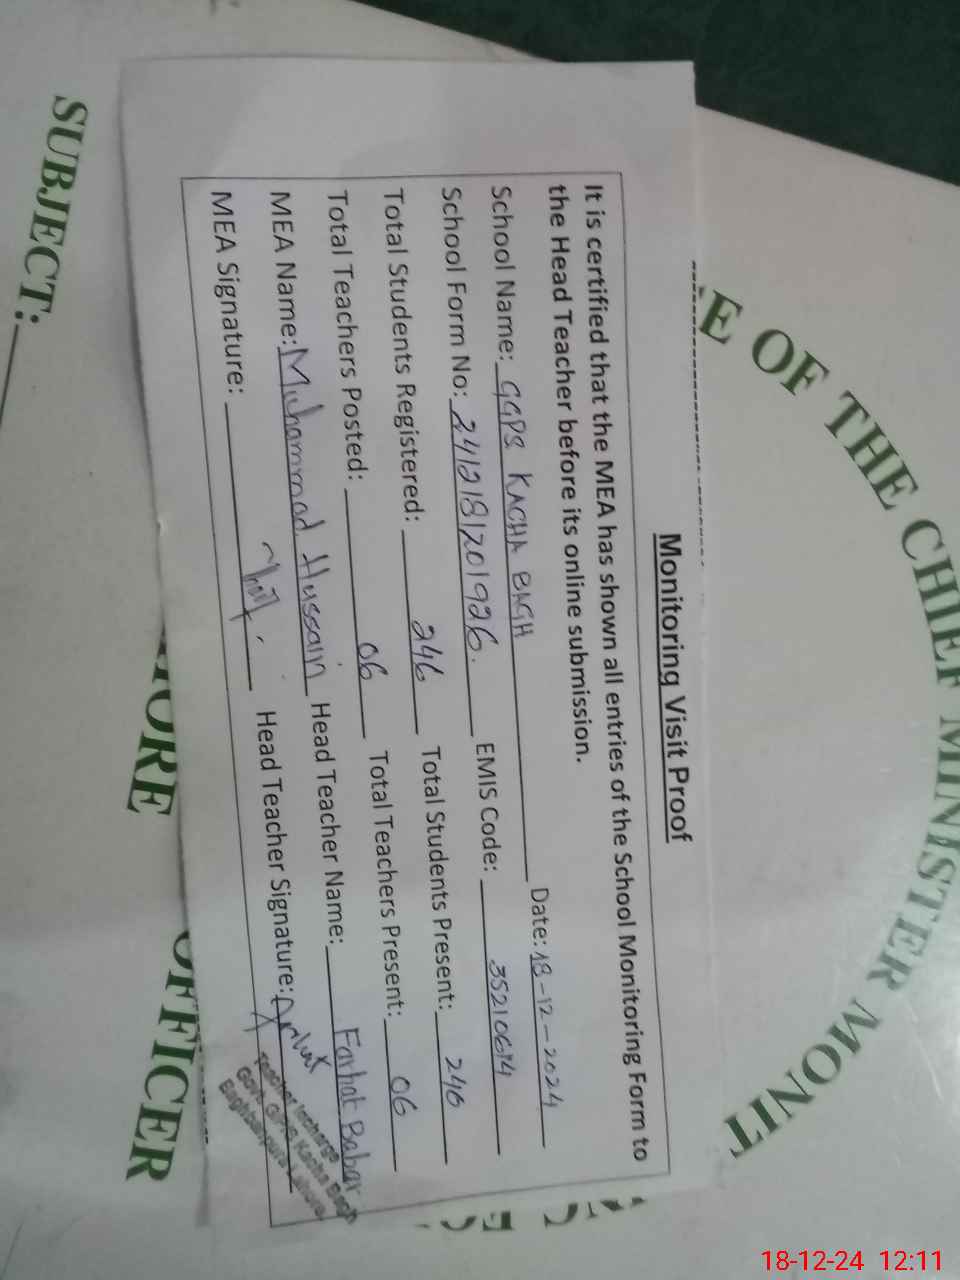 Monitoring Visit Proof
It is certified that the MEA has shown all entries of the School Monitoring Form to
the Head Teacher before its online submission.
School Name: GGPS KACHA BAGH Date: 18-12-2024
School Form No: 2412181201926. EMIS Code: 35210614
Total Students Registered: 246 Total Students Present: 246
Total Teachers Posted: 06 Total Teachers Present: 06
MEA Name: Muhammad Hussain Head Teacher Name: Farhat Babar
MEA Signature: Head Teacher Signature:
Teacher Incharge
Govt. Kacha Bagh
Baghbanpura Lahore
E OF THE CHIEF MINISTER MONIT
SUBJECT:
ORE
OFFICER
18-12-24 12:11